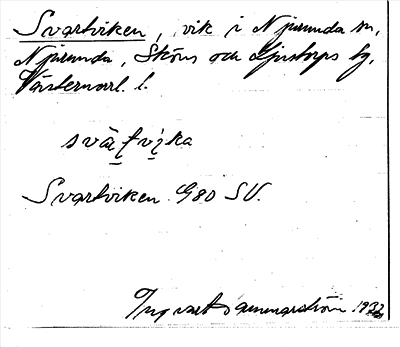 Svartviken, vik i Njurunda sn,
Njurunda, Sköns och Ljustorps tg,
Västernorrl. l.
svär̤tvi̤ka
Svartviken G80 SV.
Ingvart Hammarström 1932